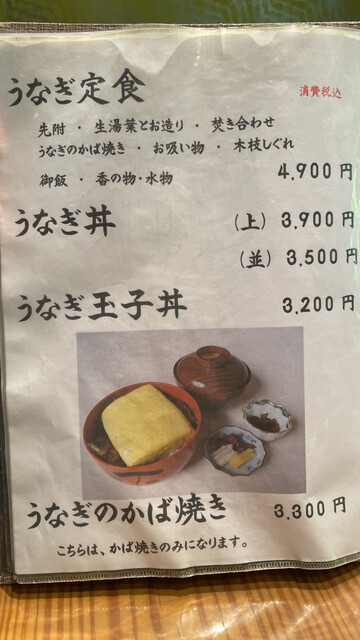 うなぎ定食
消費税込
先附・生湯葉とお造り・焚き合わせ
うなぎのかば焼き・お吸い物・木枝しぐれ
御飯・香の物・水物 4,900円
うなぎ丼 (上) 3,900円
(並) 3,500円
うなぎ玉子丼 3,200円
うなぎのかば焼き 3,300円
こちらは、かば焼きのみになります。